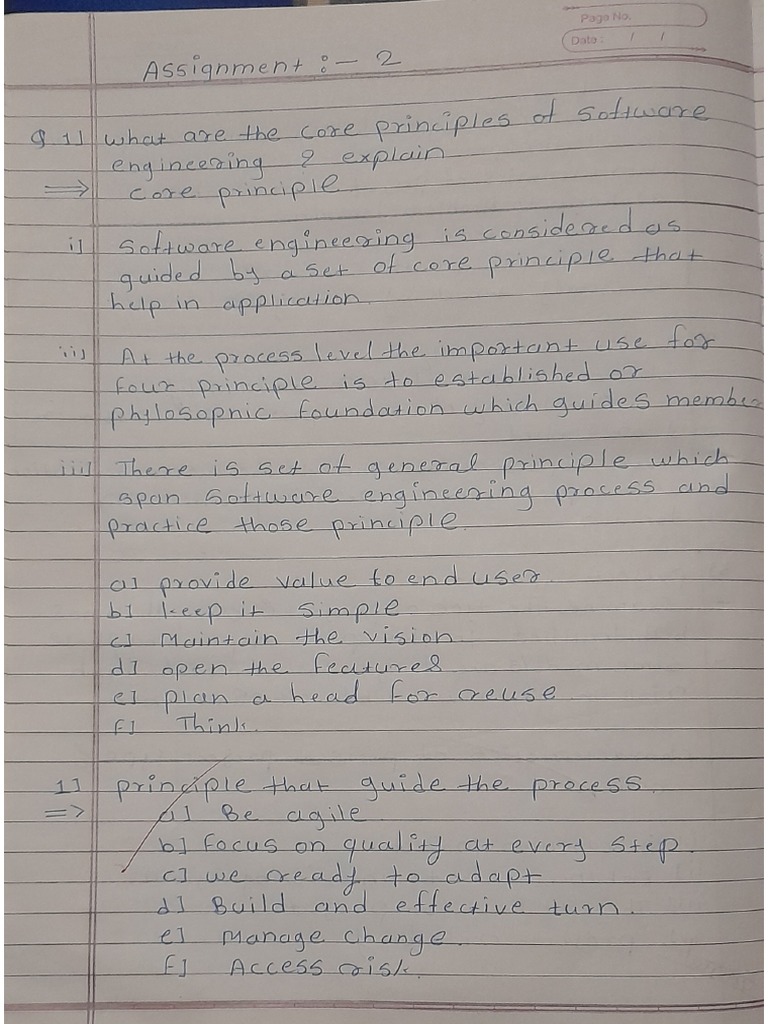 Page No.
Date: / /
Assignment :- 2
Q 1] what are the core principles of software
engineering ? explain
=> core principle
i] Software engineering is considered as
guided by a set of core principle that
help in application.
ii] At the process level the important use for
four principle is to established or
phylosopnic foundation which guides member
iii] There is set of general principle which
span software engineering process and
practice those principle.
a] provide value to end user
b] keep it simple
c] Maintain the vision
d] open the features
e] plan a head for reuse
f] Think.
1] principle that guide the process.
=> a] Be agile
b] Focus on quality at every step.
c] we ready to adapt
d] Build and effective turn.
e] Manage change.
f] Access risk.